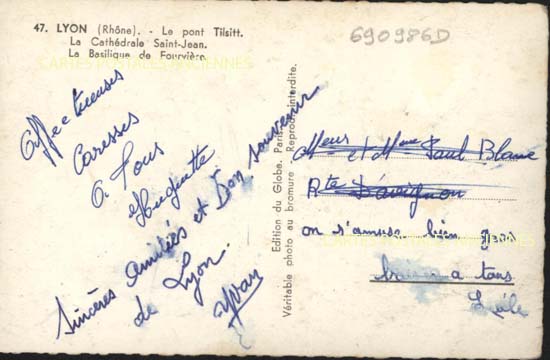 47. LYON (Rhône). - Le pont Tilsitt.
La Cathédrale Saint-Jean.
La Basilique de Fourvière.
690986D
CARTES POSTALES ANCIENNES
Affectueuses
Caresses
à Tous
Huguette
Sincères amitiés et bon souvenir
de Lyon.
Yvan
Edition du Globe, Paris
Véritable photo au bromure - Reproduction interdite.
Meur et Mme Paul Blanc
Rte D'avignon
on s'amuse bien
a tous